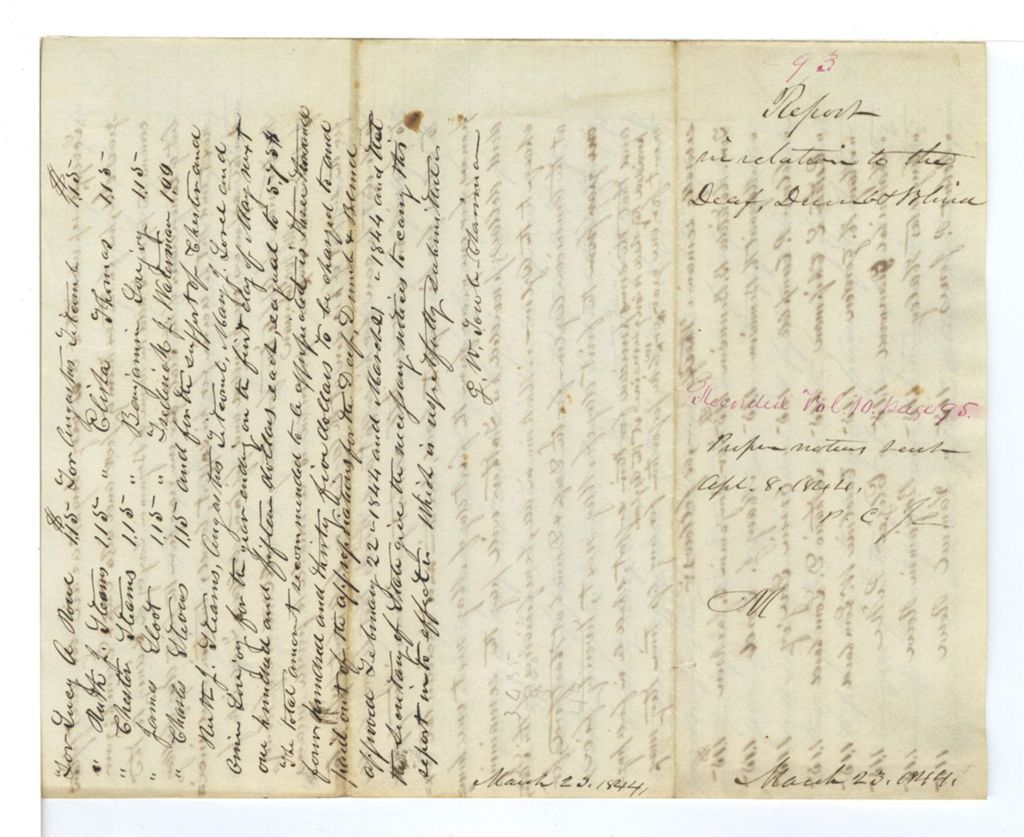 For Lucy A Howe $ 115 For Augustus Titcomb $ 115
" Ruth J. Stearns 115 " Elista Thomas 115
" Chester Stearns 115 " Benjamin Lovejoy 115
" James Eliot 115 " Frederick J. Waterman 169
" Charles Stevens 115 and for the support of Chester and
Ruth J. Stearns, Augustus Titcomb, Mary J. Lord and
Lovejoy for the year ending on the first day of May next
one hundred and fifteen dollars each, equal to
The total amount recommended to be appropriated, is three thousand
four hundred and thirty five dollars to be charged to and
paid out of the appropriations for the Deaf, Dumb & Blind
approved February 22d 1844 and March 1844 and that
the Secretary of State give the necessary notices to carry this
report into effect: Which is respectfully submitted.
G. W. Towle Chairman
March 23. 1844.
93
Report
in relation to the
Deaf, Dumb & Blind
Recorded Vol. 10. page 95.
Proper notices sent
Apl. 8. 1844.
P. C. J.
M
March 23. 1844.